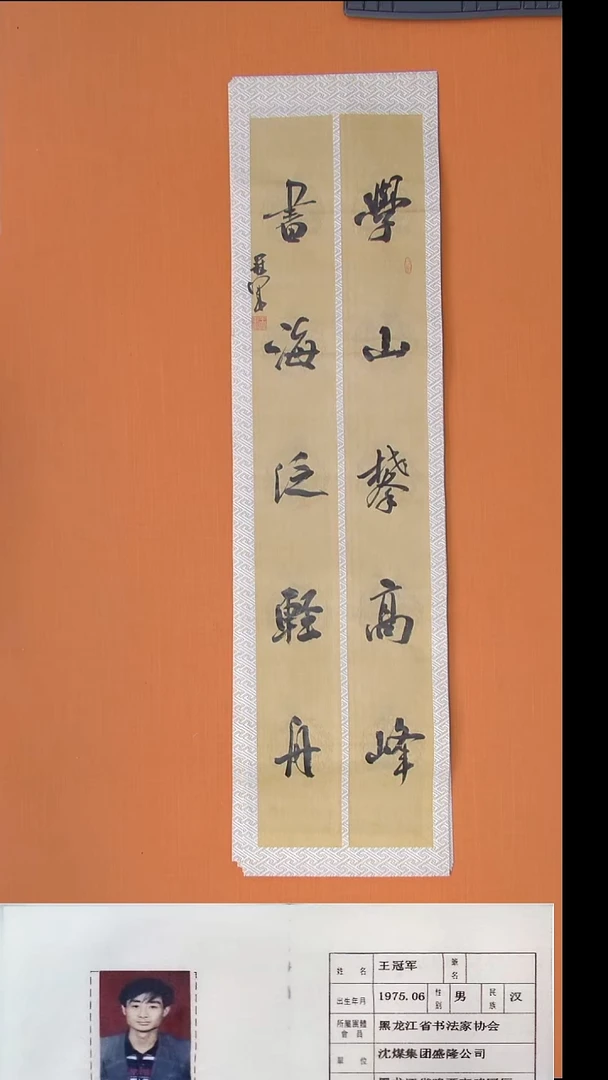 學山攀高峰
書海泛輕舟
冠军
姓 名 王冠军 筆名
出生年月 1975.06 性别 男 民族 汉
所屬團體會員 黑龙江省书法家协会
單 位 沈煤集团盛隆公司